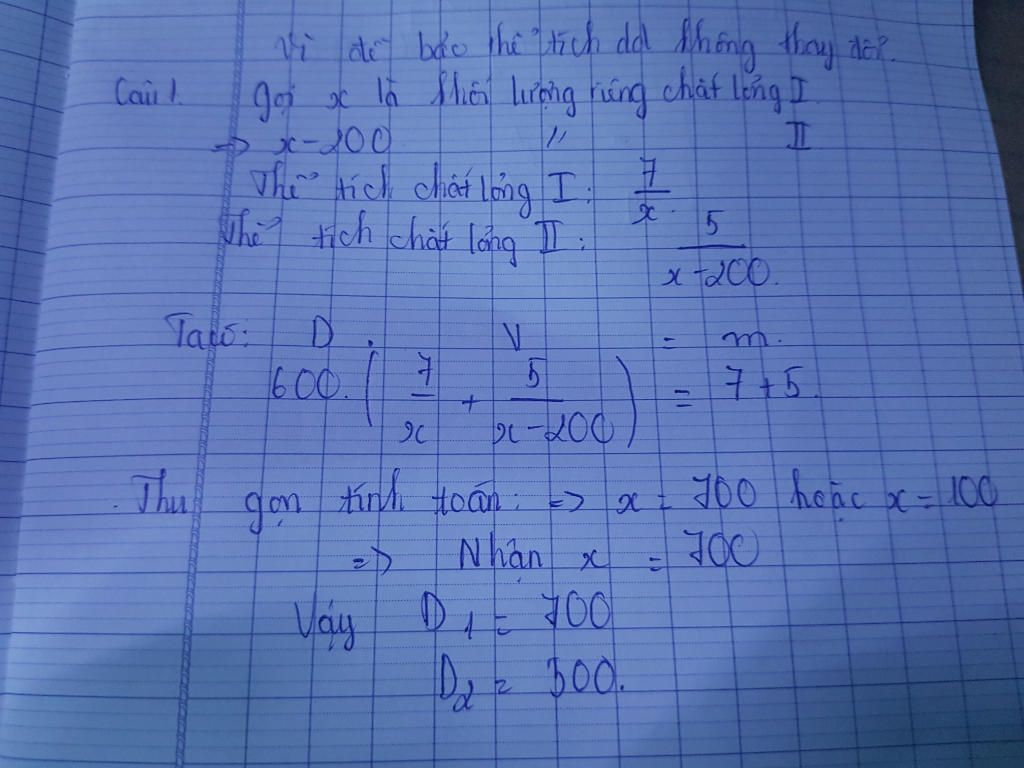 Vì đề bảo thể tích dd không thay đổi.
Câu 1. gọi x là khối lượng riêng chất lỏng I
=> x - 200 // II
Thể tích chất lỏng I: 7/x.
Thể tích chất lỏng II: 5/(x - 200).
Ta có: D . V = m.
600. (7/x + 5/(x - 200)) = 7 + 5.
Thu gọn tính toán: => x = 700 hoặc x = 100
=> Nhận x = 700
Vậy D1 = 700
D2 = 500.